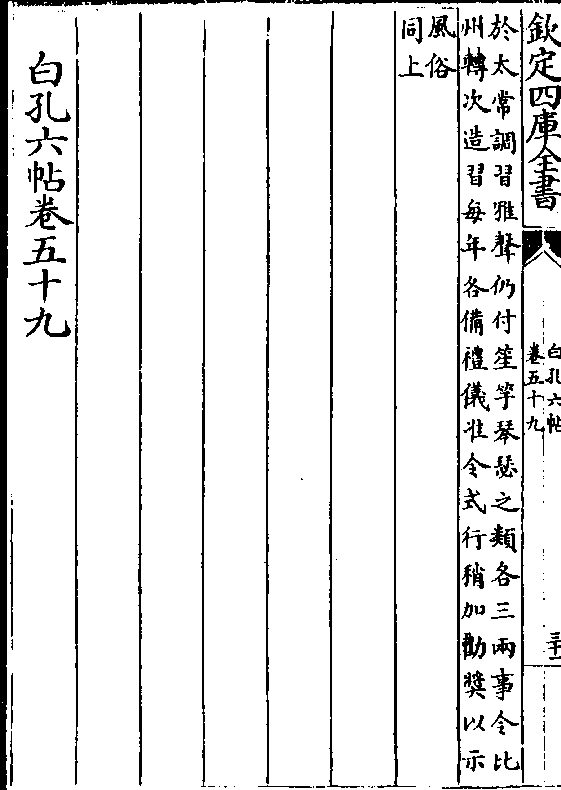 欽定四庫全書
白孔六帖
卷五十九
三十二
於太常調習雅聲仍付笙竽琴瑟之類各三兩事令比
州轉次造習每年各備禮儀准令式行稍加勸奬以示
風俗
同上
白孔六帖卷五十九